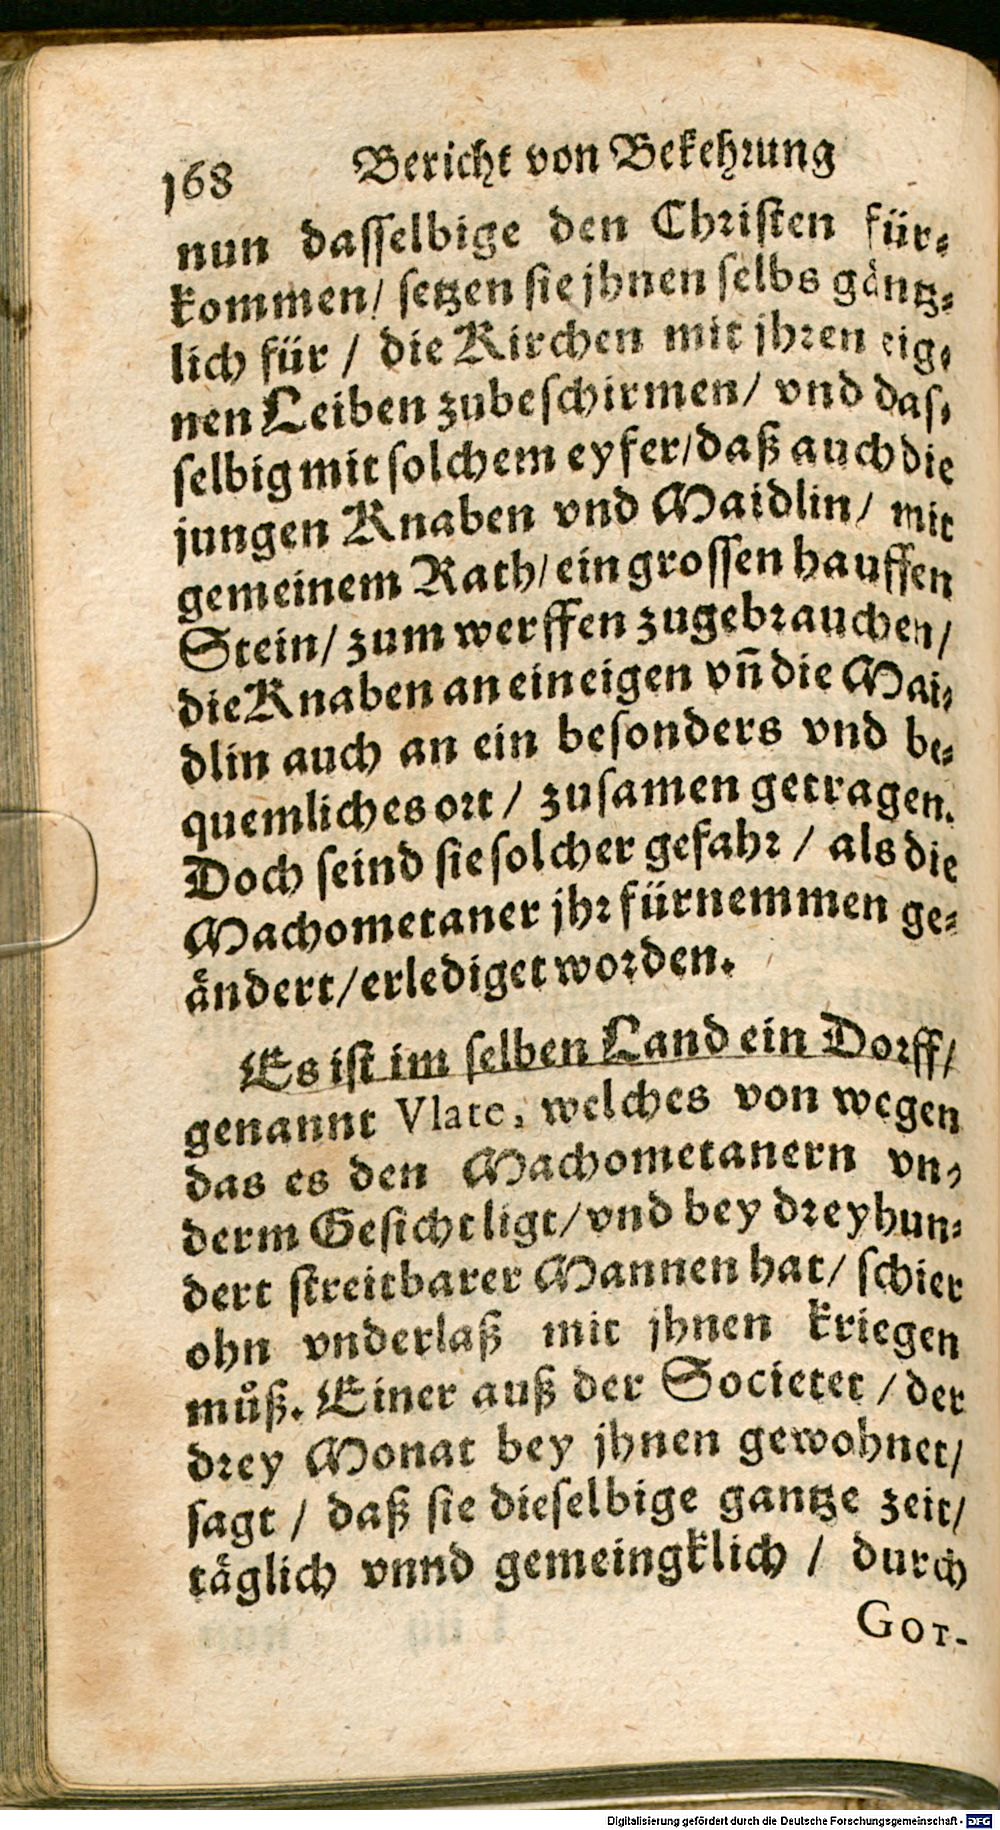 168 Bericht von Bekehrung
nun dasselbige den Christen für⸗
kommen/ setzen sie jhnen selbs gäntz⸗
lich für / die Kirchen mit jhren eig⸗
nen Leiben zubeschirmen/ vnd das⸗
selbig mit solchem eyfer/daß auch die
jungen Knaben vnd Maidlin/ mit
gemeinem Rath/ein grossen hauffen
Stein/ zum werffen zugebrauchen/
die Knaben an ein eigen vñ die Mai⸗
dlin auch an ein besonders vnd be⸗
quemliches ort / zusamen getragen.
Doch seind sie solcher gefahr / als die
Machometaner jhr fürnemmen ge⸗
ändert/erlediget worden.
Es ist im selben Land ein Dorff/
genannt Vlate, welches von wegen
das es den Machometanern vn⸗
derm Gesicht ligt/vnd bey dreyhun⸗
dert streitbarer Mannen hat/ schier
ohn vnderlaß mit jhnen kriegen
můß. Einer auß der Societet / der
drey Monat bey jhnen gewohnet/
sagt / daß sie dieselbige gantze zeit/
täglich vnnd gemeingklich / durch
Got-
Digitalisierung gefördert durch die Deutsche Forschungsgemeinschaft - DFG